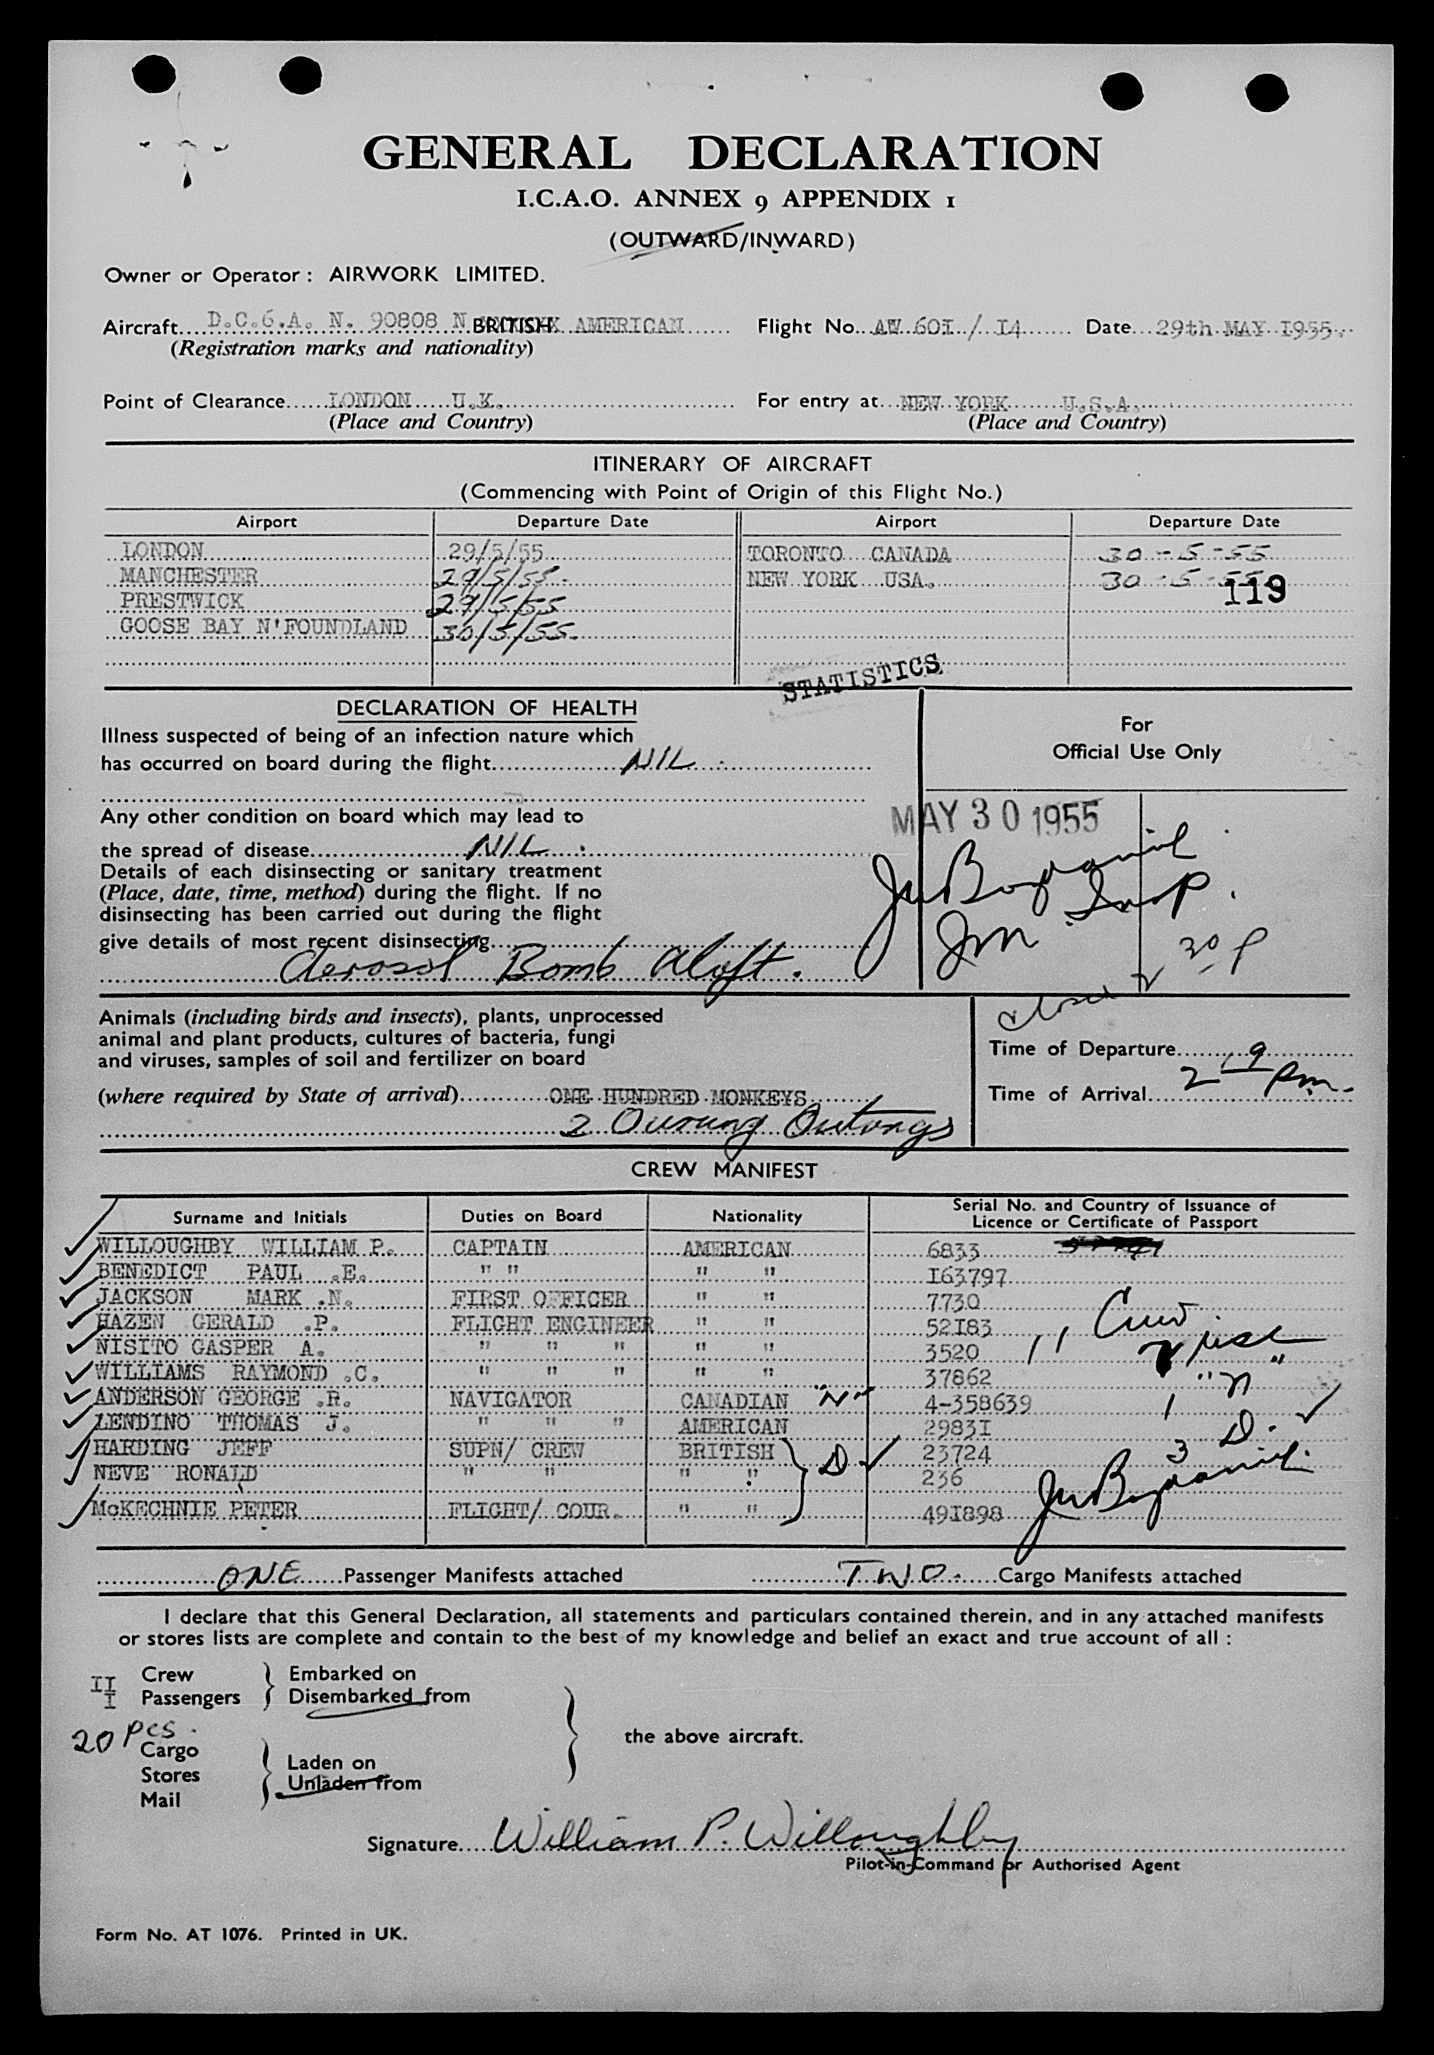 GENERAL DECLARATION
I.C.A.O. ANNEX 9 APPENDIX 1
(OUTWARD/INWARD)
Owner or Operator : AIRWORK LIMITED.
Aircraft D.C.6.A. N. 90808 N BRITISH AMERICAN Flight No. AW 60I / I4 Date 29th MAY I955.
(Registration marks and nationality)
Point of Clearance LONDON U.K. For entry at NEW YORK U.S.A.
(Place and Country) (Place and Country)
ITINERARY OF AIRCRAFT
(Commencing with Point of Origin of this Flight No.)
Airport Departure Date Airport Departure Date
LONDON 29/5/55 TORONTO CANADA 30-5-55
MANCHESTER 29/5/55. NEW YORK USA. 30-5-55
119
PRESTWICK 29/5/55
GOOSE BAY N'FOUNDLAND 30/5/55.
STATISTICS
DECLARATION OF HEALTH
Illness suspected of being of an infection nature which
has occurred on board during the flight NIL.
For
Official Use Only
Any other condition on board which may lead to
the spread of disease NIL.
MAY 30 1955
Details of each disinsecting or sanitary treatment
(Place, date, time, method) during the flight. If no
disinsecting has been carried out during the flight
give details of most recent disinsecting
Aerosol Bomb Aloft.
Jm Insp.
2 30 P
Animals (including birds and insects), plants, unprocessed
animal and plant products, cultures of bacteria, fungi
and viruses, samples of soil and fertilizer on board
(where required by State of arrival) ONE HUNDRED MONKEYS
2 Ourung Outongs
Time of Departure
Time of Arrival 2 19 pm.
CREW MANIFEST
Surname and Initials Duties on Board Nationality Serial No. and Country of Issuance of
Licence or Certificate of Passport
WILLOUGHBY WILLIAM P. CAPTAIN AMERICAN 6833
BENEDICT PAUL .E. " " " " I63797
JACKSON MARK .N. FIRST OFFICER " " 7730
HAZEN GERALD .P. FLIGHT ENGINEER " " 52I83
NISITO GASPER A. " " " " " 3520 11 Crew
WILLIAMS RAYMOND .C. " " " " " 37862
ANDERSON GEORGE .R. NAVIGATOR CANADIAN "N" 4-358639 1 "N"
LENDINO THOMAS J. " " " AMERICAN 2983I
HARDING JEFF SUPN/ CREW BRITISH D 23724 3 D.
NEVE RONALD " " " " 236
McKECHNIE PETER FLIGHT/ COUR. " " 49I898
ONE Passenger Manifests attached TWO. Cargo Manifests attached
I declare that this General Declaration, all statements and particulars contained therein, and in any attached manifests
or stores lists are complete and contain to the best of my knowledge and belief an exact and true account of all :
II Crew Embarked on
I Passengers Disembarked from
the above aircraft.
20 pcs.
Cargo
Stores Laden on
Mail Unladen from
Signature William P. Willoughby
Pilot-in-Command or Authorised Agent
Form No. AT 1076. Printed in UK.